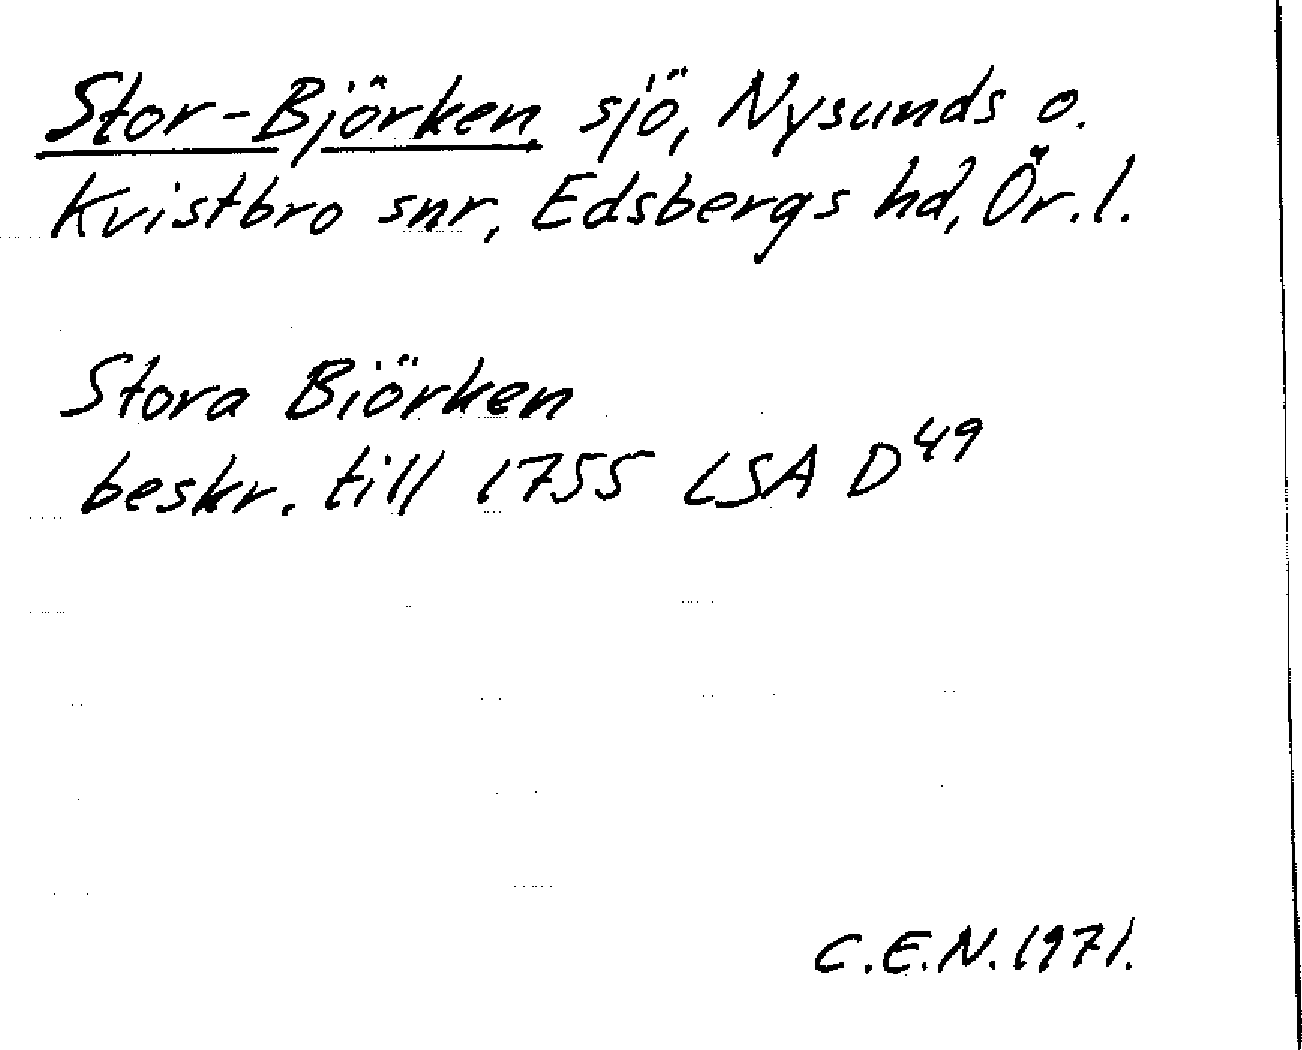 Stor-Björken, sjö, Nysunds o.
Kvistbro snr, Edsbergs hd, Ör.l.
Stora Biörken
beskr. till 1755 LSA D49
C.E.N. 1971.